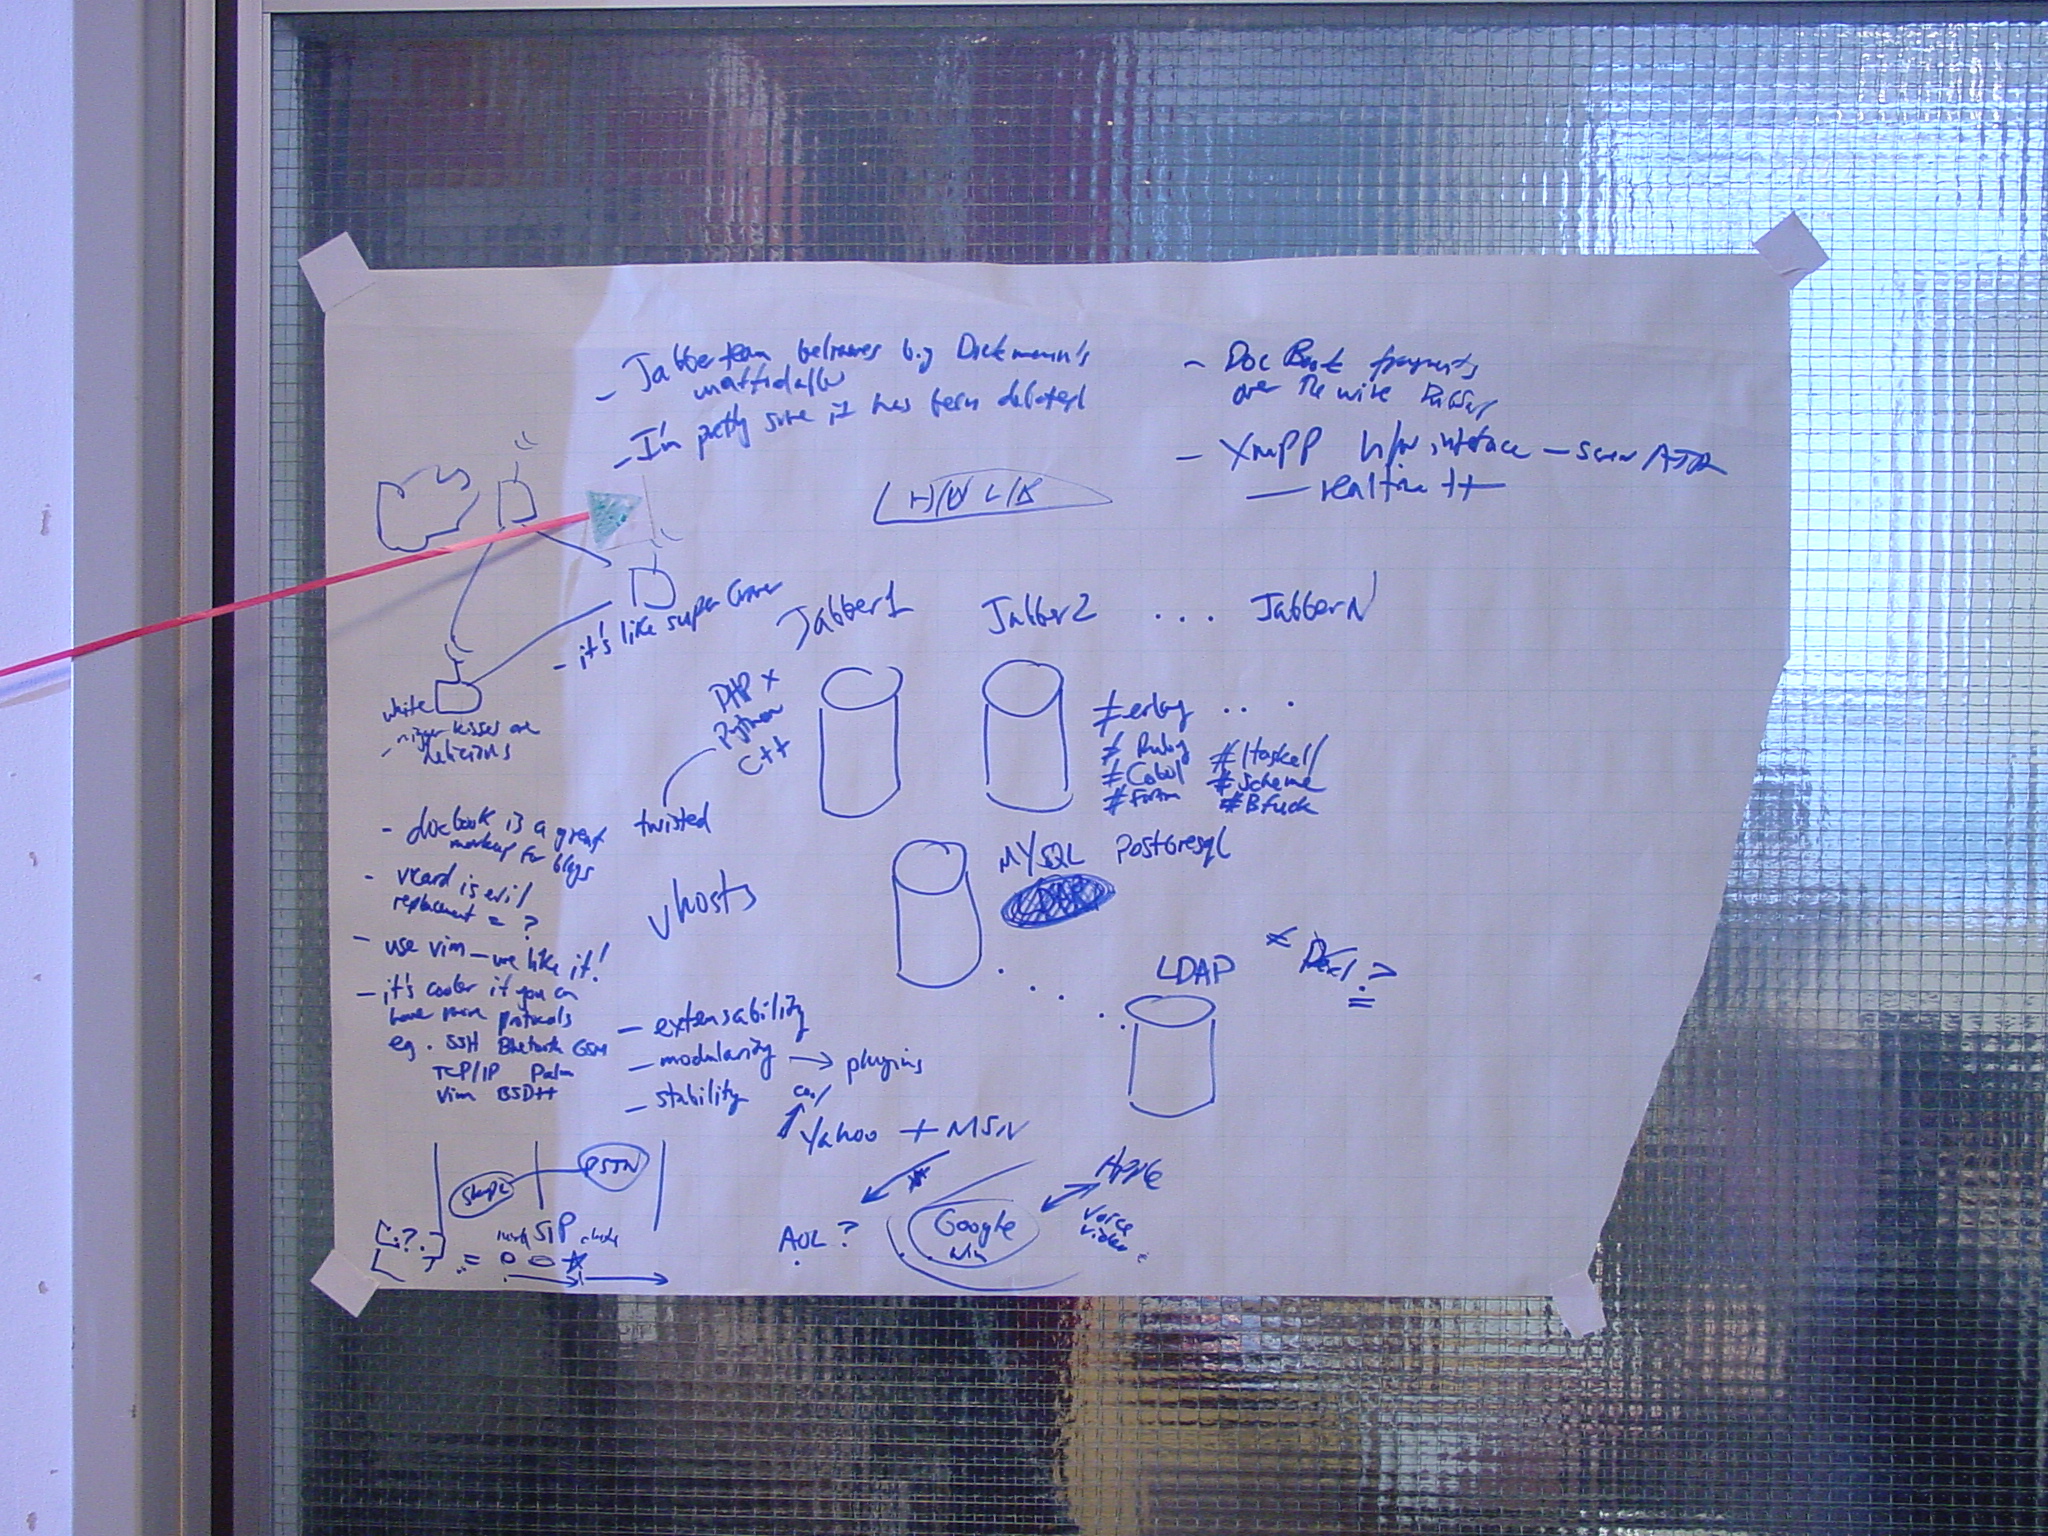 - Jabberteam believes big Dickmann's
- I'm pretty sure it has been deleted
- DocBook fragments
over the wire
- XMPP h/w interface
realtime ++
- it's like super
Jabber1 Jabber2 ... JabberN
PHP x
Python
C++
twisted
≠ erlang ...
≠ Ruby ≠ Haskell
≠ Cobol ≠ Scheme
≠ Bfuck
MYSQL Postgresql
vhosts
LDAP
white
kisses are
delicious
- docbook is a great
markup for blogs
- vcard is evil
replacement = ?
- use vim - we like it!
- it's cooler if you can
have more protocols
eg. SSH Bluetooth GSM
TCP/IP Palm
Vim BSD++
- extensability
- modularity → plugins
- stability
Yahoo + MSN
AOL ?
Google
win
voice
video
PSTN
Skype
SIP